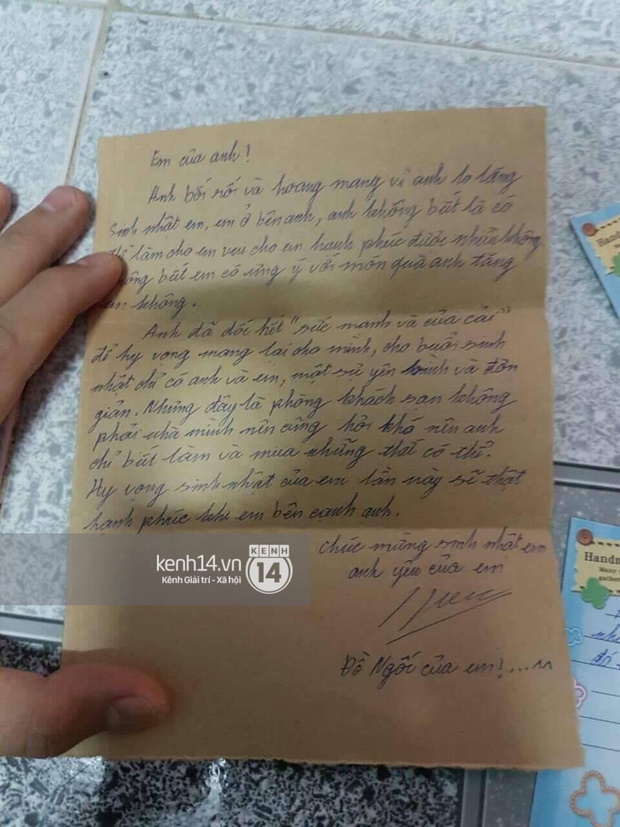 Em của anh!
Anh bối rối và hoang mang vì anh lo lắng
Sinh nhật em, em ở bên anh, anh không biết là có
thể làm cho em vui cho em hạnh phúc được nhiều không,
không biết em có ưng ý với món quà anh tặng
em không.
Anh đã dốc hết "sức mạnh và của cải"
để hy vọng mang lại cho mình, cho buổi sinh
nhật chỉ có anh và em, một sự yên bình và đơn
giản. Nhưng đây là phòng khách sạn không
phải nhà mình nên cũng hơi khó nên anh
chỉ biết làm và mua những thứ có thể.
Hy vọng sinh nhật của em lần này sẽ thật
hạnh phúc khi em bên cạnh anh.
Chúc mừng sinh nhật em
anh yêu của em
Đồ Ngốc của em!...
kenh14.vn
Kênh Giải trí - Xã hội
KENH
14
Hand
Handm
Many
gathe